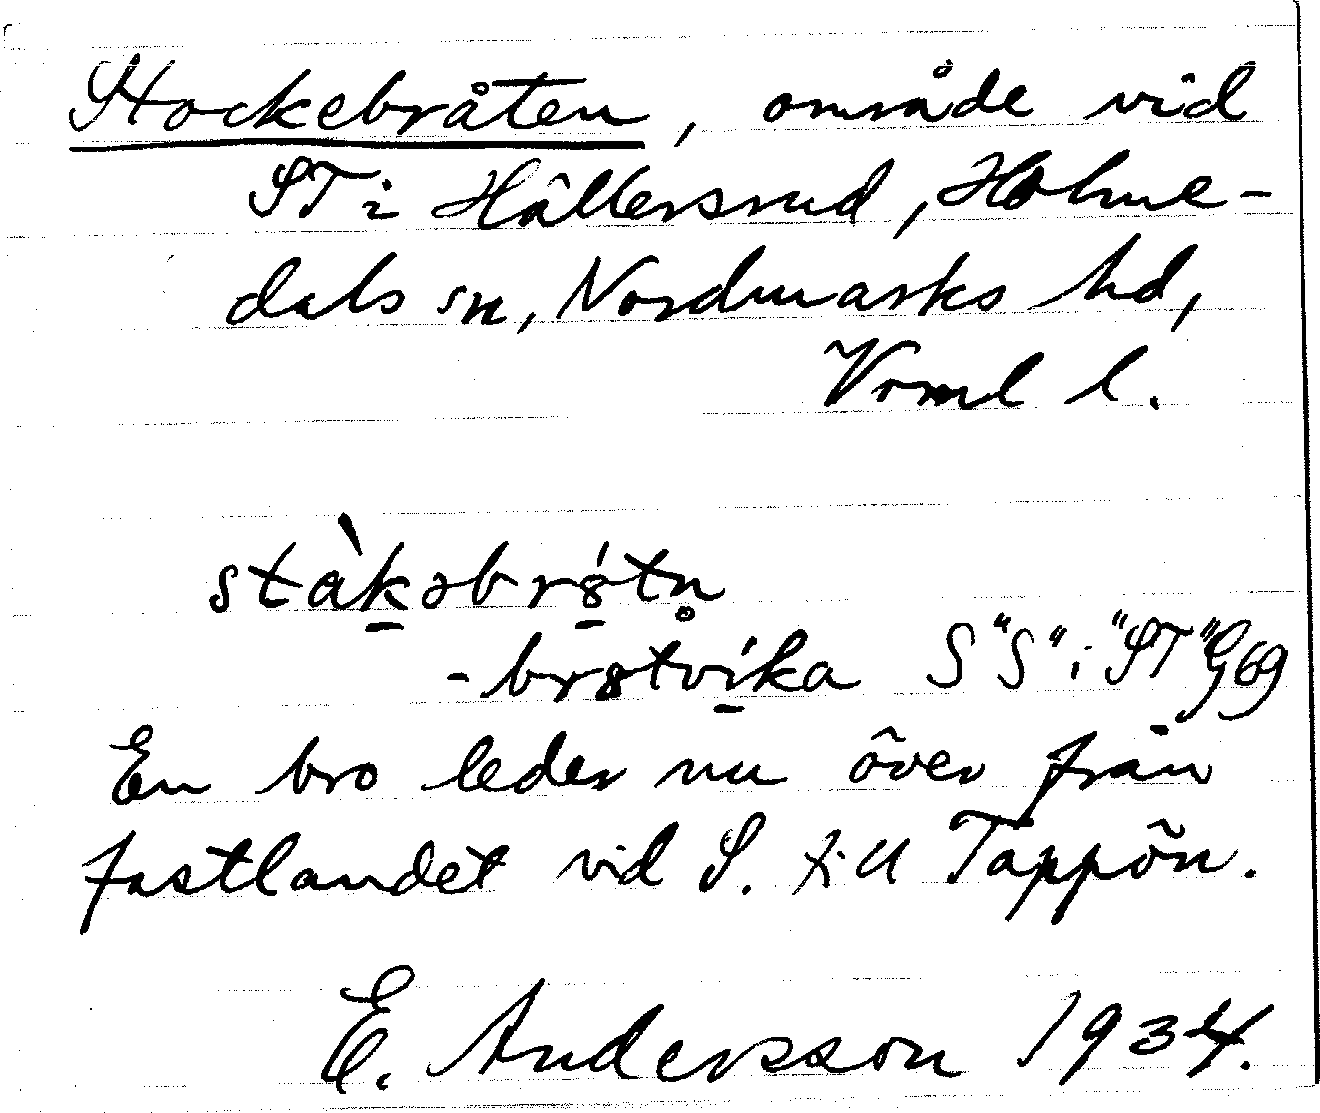 Stockebråten, område vid
ST i Hällersrud, Holme-
dals sn, Nordmarks hd,
Vrml l.
stàkəbrǻtn̥
-brøtvíka S "S" i "ST" G 69
En bro leder nu över från
fastlandet vid S. till Tappön.
E. Andersson 1934.